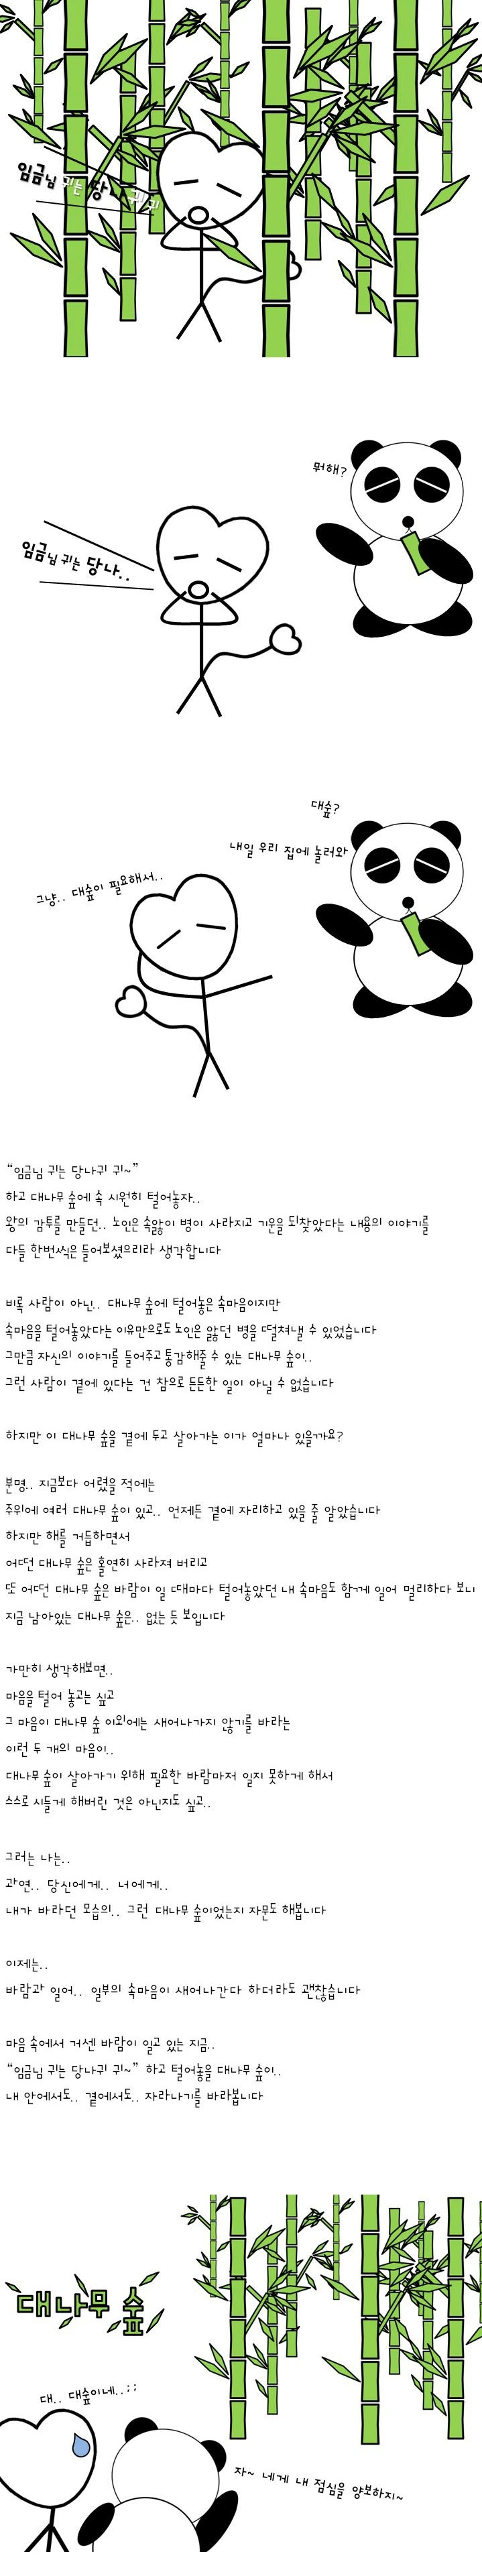 임금님 귀는 당나귀 귀
뭐해?
임금님 귀는 당나..
대숲?
내일 우리 집에 놀러와
그냥.. 대숲이 필요해서..
“임금님 귀는 당나귀 귀~”
하고 대나무 숲에 속 시원히 털어놓자..
왕의 감투를 만들던.. 노인은 속앓이 병이 사라지고 기운을 되찾았다는 내용의 이야기를
다들 한번씩은 들어보셨으리라 생각합니다
비록 사람이 아닌.. 대나무 숲에 털어놓은 속마음이지만
속마음을 털어놓았다는 이유만으로도 노인은 앓던 병을 떨쳐낼 수 있었습니다
그만큼 자신의 이야기를 들어주고 통감해줄 수 있는 대나무 숲이..
그런 사람이 곁에 있다는 건 참으로 든든한 일이 아닐 수 없습니다
하지만 이 대나무 숲을 곁에 두고 살아가는 이가 얼마나 있을까요?
분명.. 지금보다 어렸을 적에는
주위에 여러 대나무 숲이 있고.. 언제든 곁에 자리하고 있을 줄 알았습니다
하지만 해를 거듭하면서
어떤 대나무 숲은 홀연히 사라져 버리고
또 어떤 대나무 숲은 바람이 일 때마다 털어놓았던 내 속마음도 함께 일어 멀리하다 보니
지금 남아있는 대나무 숲은.. 없는 듯 보입니다
가만히 생각해보면..
마음을 털어 놓고는 싶고
그 마음이 대나무 숲 이외에는 새어나가지 않기를 바라는
이런 두 개의 마음이..
대나무 숲이 살아가기 위해 필요한 바람마저 일지 못하게 해서
스스로 시들게 해버린 것은 아닌지도 싶고..
그러는 나는..
과연.. 당신에게.. 너에게..
내가 바라던 모습의.. 그런 대나무 숲이었는지 자문도 해봅니다
이제는..
바람과 일어.. 일부의 속마음이 새어나간다 하더라도 괜찮습니다
마음 속에서 거센 바람이 일고 있는 지금..
“임금님 귀는 당나귀 귀~” 하고 털어놓을 대나무 숲이..
내 안에서도.. 곁에서도.. 자라나기를 바라봅니다
대나무 숲
대.. 대숲이네..;;
자~ 네게 내 점심을 양보하지~